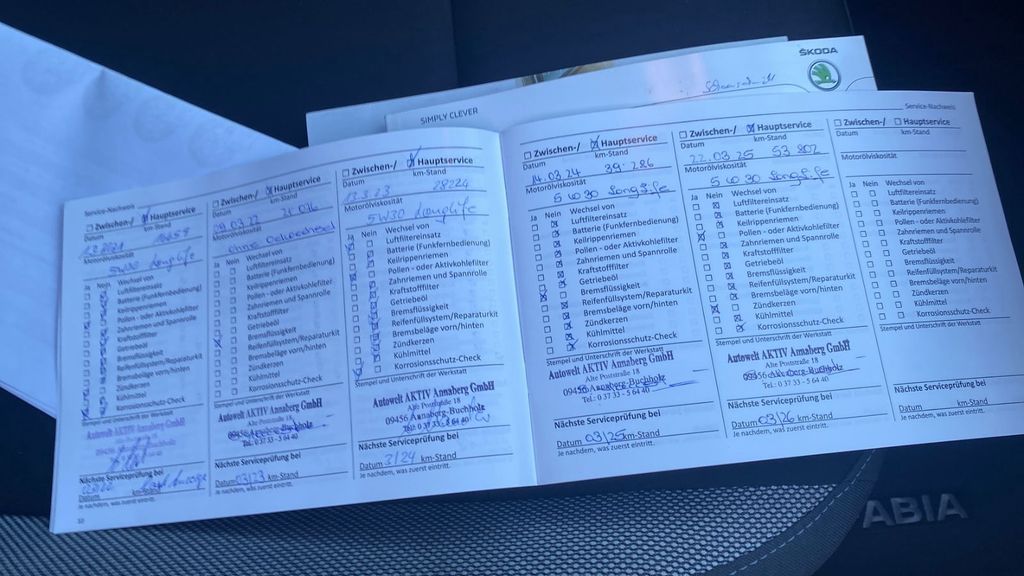 SIMPLY CLEVER
ŠKODA
Service-Nachweis
Zwischen-/ Hauptservice
Datum km-Stand
Motorölviskosität
5W30 longlife
Wechsel von
Ja Nein Luftfiltereinsatz
Batterie (Funkfernbedienung)
Keilrippenriemen
Pollen - oder Aktivkohlefilter
Zahnriemen und Spannrolle
Kraftstofffilter
Getriebeöl
Bremsflüssigkeit
Reifenfüllsystem/Reparaturkit
Bremsbeläge vorn/hinten
Zündkerzen
Kühlmittel
Korrosionsschutz-Check
Stempel und Unterschrift der Werkstatt
Autowelt AKTIV Annaberg GmbH
Nächste Serviceprüfung bei
Datum km-Stand
Je nachdem, was zuerst eintritt.
Zwischen-/ Hauptservice
Datum km-Stand
09.03.22
Motorölviskosität
ohne Oelwechsel
Ja Nein Wechsel von
Luftfiltereinsatz
Batterie (Funkfernbedienung)
Keilrippenriemen
Pollen - oder Aktivkohlefilter
Zahnriemen und Spannrolle
Kraftstofffilter
Getriebeöl
Bremsflüssigkeit
Reifenfüllsystem/Reparaturkit
Bremsbeläge vorn/hinten
Zündkerzen
Kühlmittel
Korrosionsschutz-Check
Stempel und Unterschrift der Werkstatt
Autowelt AKTIV Annaberg GmbH
Alte Poststraße 18
09456 Annaberg-Buchholz
Tel.: 0 37 33 - 5 64 40
Nächste Serviceprüfung bei
Datum 03/23 km-Stand
Je nachdem, was zuerst eintritt.
Zwischen-/ Hauptservice
Datum km-Stand
13.3.23 28224
Motorölviskosität
5W30 Longlife
Ja Nein Wechsel von
Luftfiltereinsatz
Batterie (Funkfernbedienung)
Keilrippenriemen
Pollen - oder Aktivkohlefilter
Zahnriemen und Spannrolle
Kraftstofffilter
Getriebeöl
Bremsflüssigkeit
Reifenfüllsystem/Reparaturkit
Bremsbeläge vorn/hinten
Zündkerzen
Kühlmittel
Korrosionsschutz-Check
Stempel und Unterschrift der Werkstatt
Autowelt AKTIV Annaberg GmbH
Alte Poststraße 18
09456 Annaberg-Buchholz
Tel.: 0 37 33 - 5 64 40
Nächste Serviceprüfung bei
Datum 3/24 km-Stand
Je nachdem, was zuerst eintritt.
Zwischen-/ Hauptservice
Datum km-Stand
14.03.24 39.286
Motorölviskosität
5W30 Longlife
Ja Nein Wechsel von
Luftfiltereinsatz
Batterie (Funkfernbedienung)
Keilrippenriemen
Pollen - oder Aktivkohlefilter
Zahnriemen und Spannrolle
Kraftstofffilter
Getriebeöl
Bremsflüssigkeit
Reifenfüllsystem/Reparaturkit
Bremsbeläge vorn/hinten
Zündkerzen
Kühlmittel
Korrosionsschutz-Check
Stempel und Unterschrift der Werkstatt
Autowelt AKTIV Annaberg GmbH
Alte Poststraße 18
09456 Annaberg-Buchholz
Tel.: 0 37 33 - 5 64 40
Nächste Serviceprüfung bei
Datum 03/25 km-Stand
Je nachdem, was zuerst eintritt.
Zwischen-/ Hauptservice
Datum km-Stand
22.03.25 53 802
Motorölviskosität
5W30 Longlife
Ja Nein Wechsel von
Luftfiltereinsatz
Batterie (Funkfernbedienung)
Keilrippenriemen
Pollen - oder Aktivkohlefilter
Zahnriemen und Spannrolle
Kraftstofffilter
Getriebeöl
Bremsflüssigkeit
Reifenfüllsystem/Reparaturkit
Bremsbeläge vorn/hinten
Zündkerzen
Kühlmittel
Korrosionsschutz-Check
Stempel und Unterschrift der Werkstatt
Autowelt AKTIV Annaberg GmbH
Alte Poststraße 18
09456 Annaberg-Buchholz
Tel.: 0 37 33 - 5 64 40
Nächste Serviceprüfung bei
Datum 03/26 km-Stand
Je nachdem, was zuerst eintritt.
Service-Nachweis
Zwischen-/ Hauptservice
Datum km-Stand
Motorölviskosität
Ja Nein Wechsel von
Luftfiltereinsatz
Batterie (Funkfernbedienung)
Keilrippenriemen
Pollen - oder Aktivkohlefilter
Zahnriemen und Spannrolle
Kraftstofffilter
Getriebeöl
Bremsflüssigkeit
Reifenfüllsystem/Reparaturkit
Bremsbeläge vorn/hinten
Zündkerzen
Kühlmittel
Korrosionsschutz-Check
Stempel und Unterschrift der Werkstatt
Nächste Serviceprüfung bei
Datum km-Stand
Je nachdem, was zuerst eintritt.
ABIA